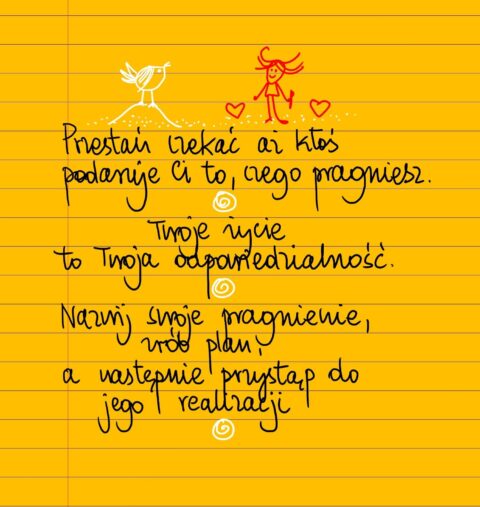 Przestań czekać aż ktoś
podaruje Ci to, czego pragniesz.
Twoje życie
to Twoja odpowiedzialność.
Nazwij swoje pragnienie,
zrób plan,
a następnie przystąp do
jego realizacji